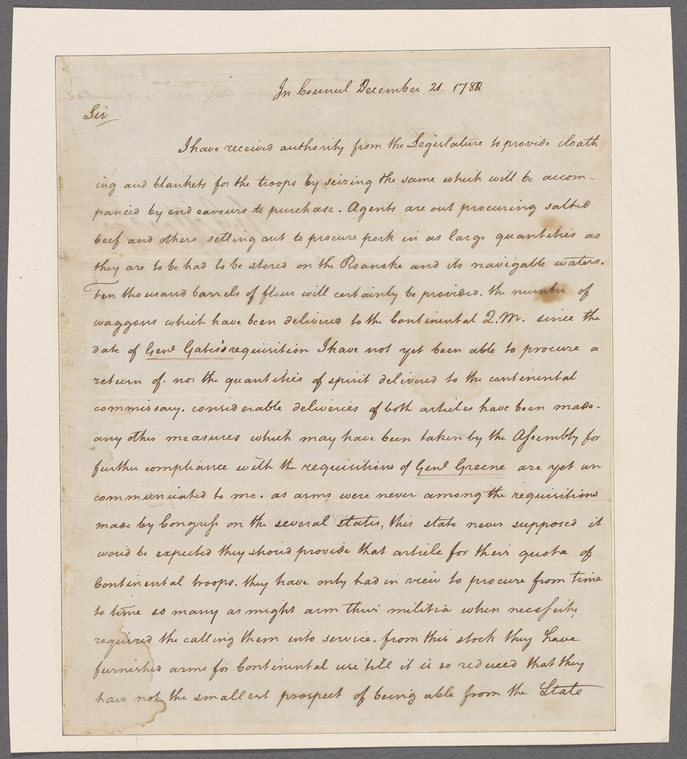 In Council December 21. 1780
Sir
I have received authority from the Legislature to provide cloath
ing and blankets for the troops by seizing the same which will be accom-
panied by endeavours to purchase. Agents are out procuring salted
beef and others setting out to procure pork in as large quantities as
they are to be had to be stored on the Roanoke and its navigable waters.
Ten thousand barrels of flour will certainly be provided. the number of
waggons which have been delivered to the Continental Q.M. since the
date of Genl Gates's requisition I have not yet been able to procure a
return of. nor the quantities of spirit delivered to the continental
commissary. considerable deliveries of both articles have been made.
any other measures which may have been taken by the Assembly for
further compliance with the requisitions of Genl Greene are yet un
communicated to me. as arms were never among the requisitions
made by Congress on the several states, this state never supposed it
would be expected they should provide that article for their quota of
Continental troops. they have only had in view to procure from time
to time so many as might arm their militia when necessity
required the calling them into service. from this stock they have
furnished arms for Continental use 'till it is so reduced that they
have not the smallest prospect of being able from the State